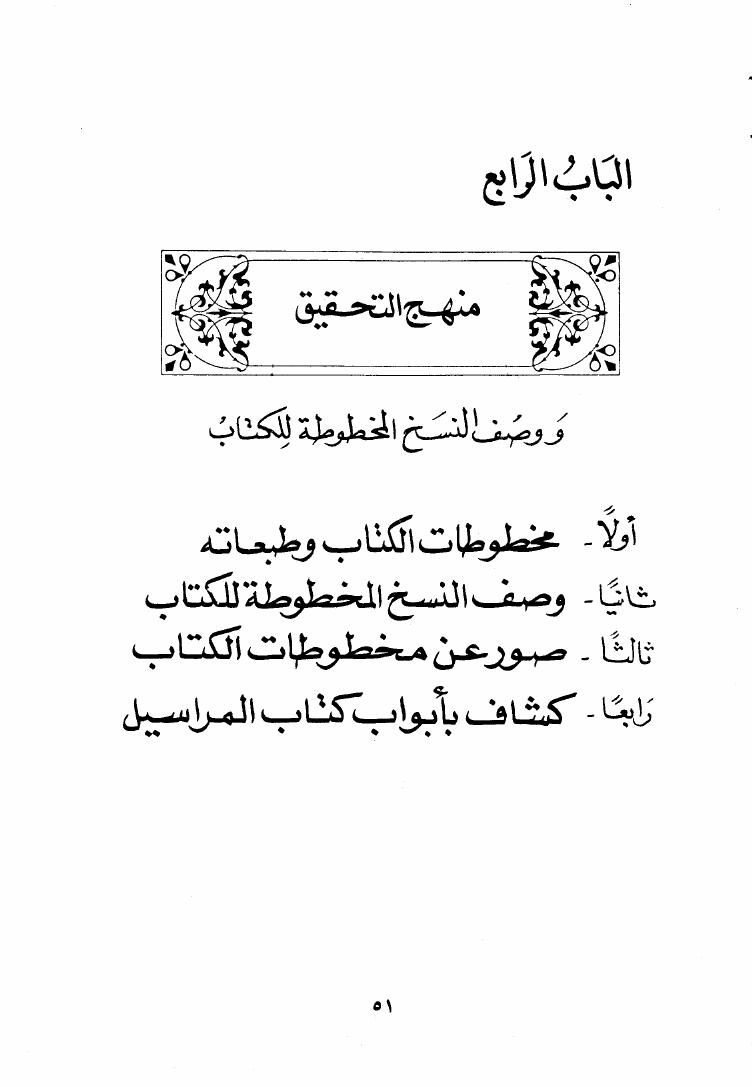 البَابُ الرَابع
منهج التحقيق
وَ وصُف النسَخ المخطوطة لِلكتابُ
أولاً - مخطوطات الكتاب وطبعاته
ثانيًا - وصف النسخ المخطوطة للكتاب
ثالثًا - صور عن مخطوطات الكتاب
رَابعًا - كشاف بأبواب كتاب المراسيل
٥١